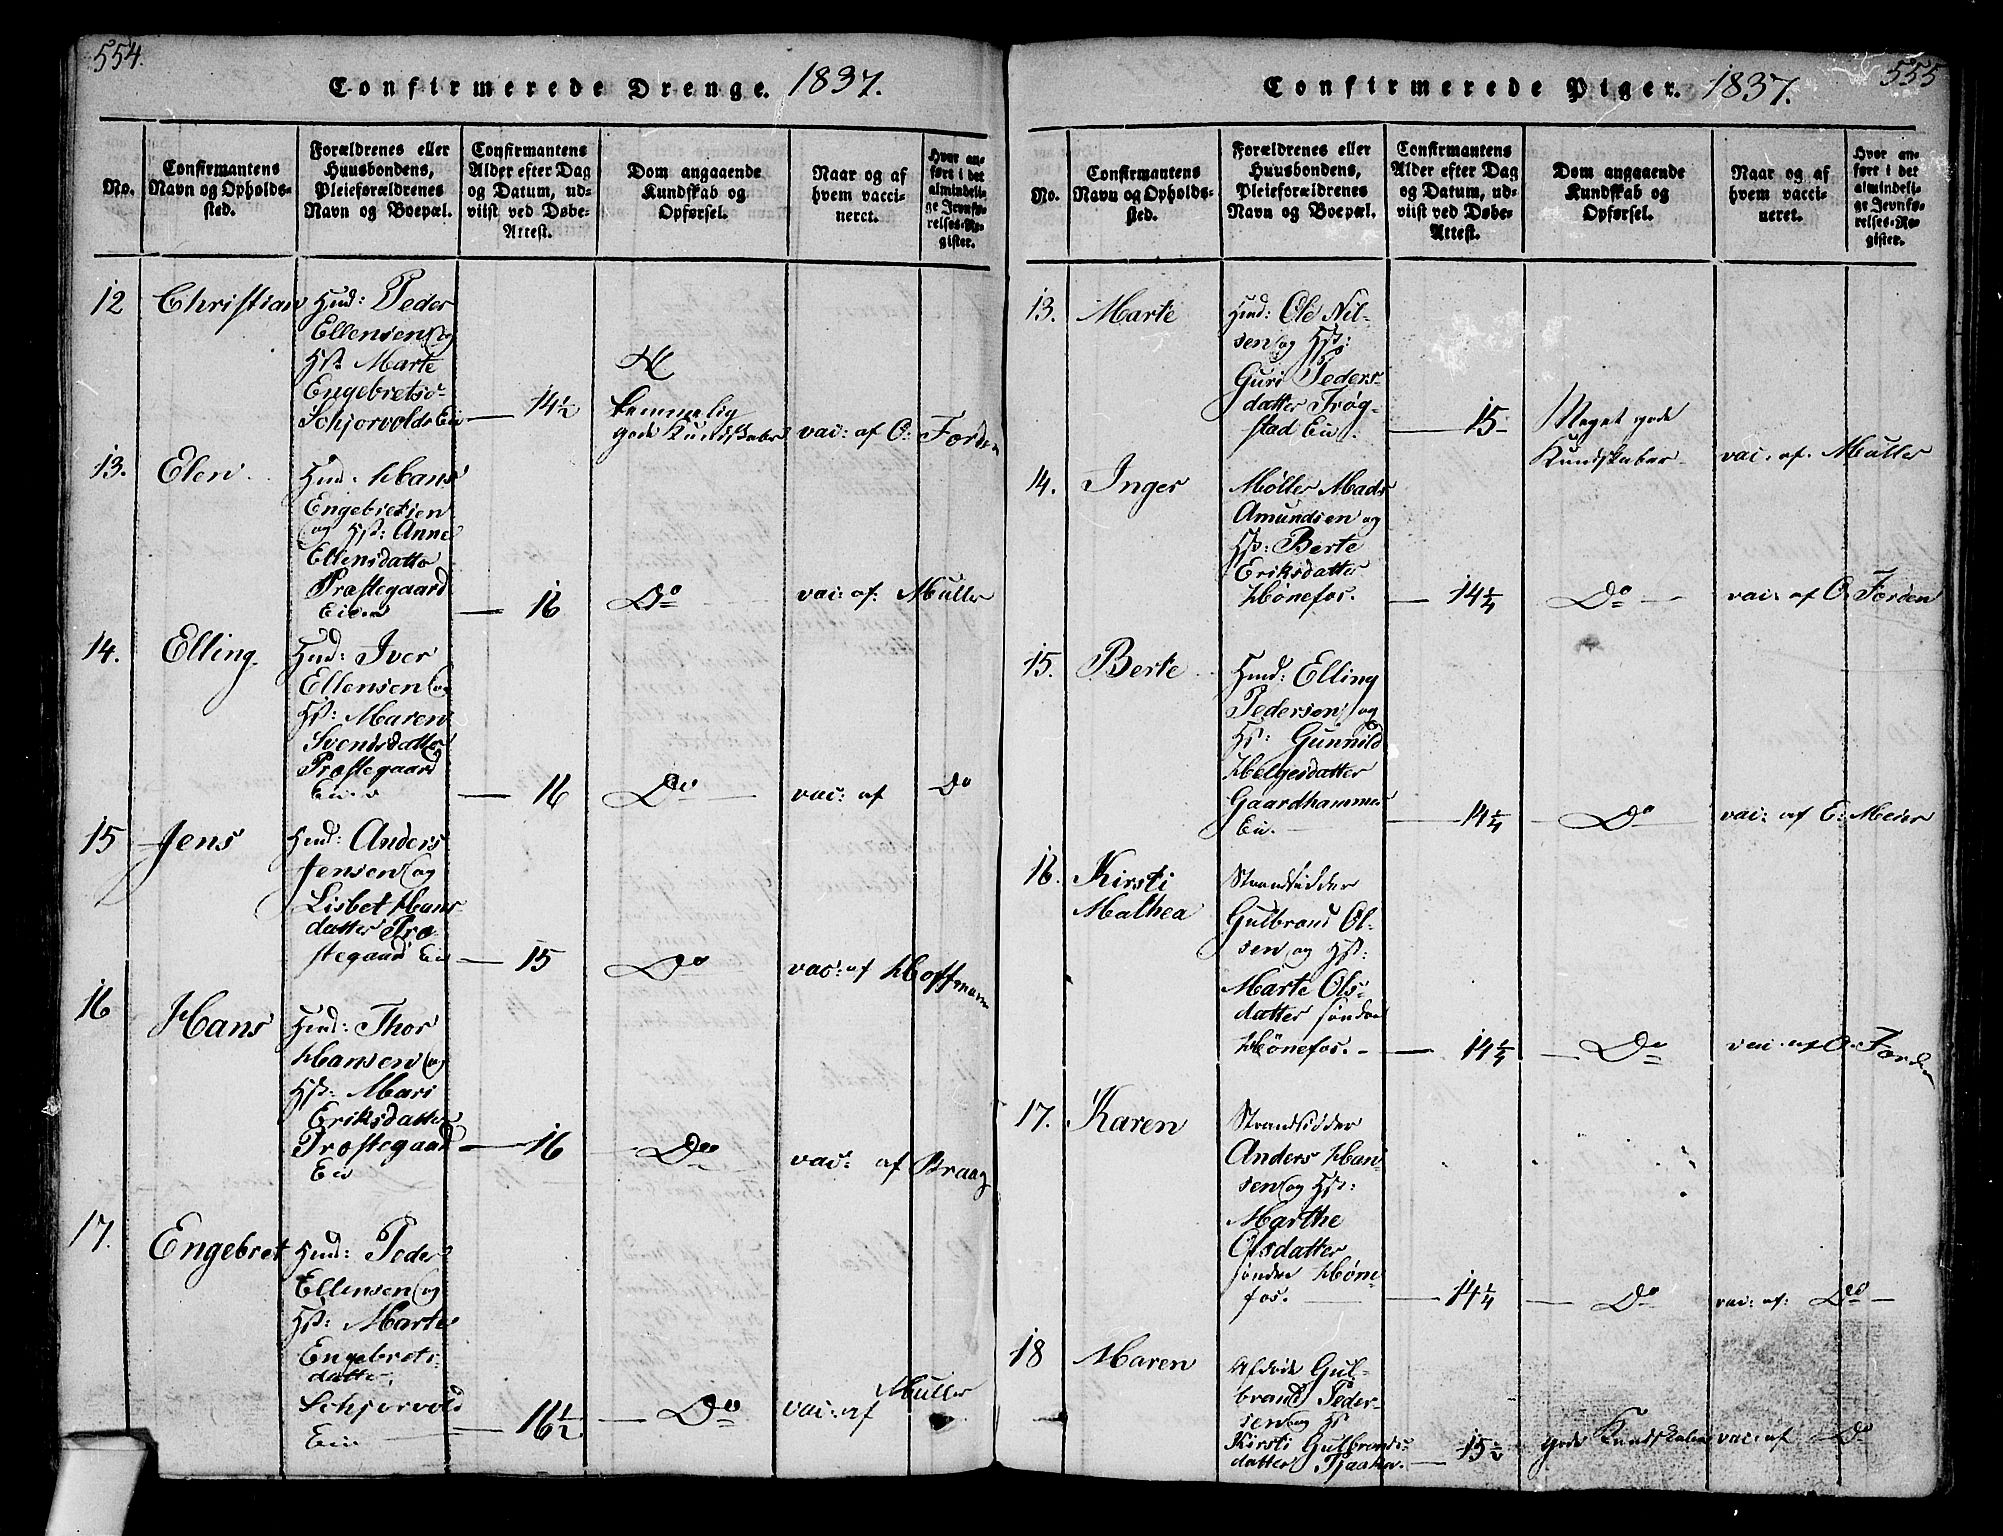 554.
Confirmerede Drenge. 1837.
No.
Confirmantens
Navn og Opholds-
sted.
Forældrenes eller
Huusbondens,
Pleieforældrenes
Navn og Boepæl.
Confirmantens
Alder efter Dag
og Datum, ud-
viist ved Døbe-
Attest.
Dom angaaende
Kundskab og
Opførsel.
Naar og af
hvem vacci-
neret.
Hvor an-
ført i det
almindeli-
ge Jevnfø-
relses-Re-
gister.
12
Christian
Hmd: Peder
Ellensen og
Hst: Marte
Engebretsd
Schjorvolds Eie
14½
temmelig
gode Kundskaber
vac: af O: Forden
13.
Elen
Hmd: Hans
Engebretsen
og Hst: Anne
Ellensdatte
Præstegaard
Eie
16
Do
vac: af: Muller
14.
Elling.
Hmd: Iver
Ellensen og
Hst: Maren
Svendsdatter
Præstegaard
Eie
16
Do
vac: af Do
15
Jens
Hmd: Anders
Jensen og
Lisbet Hans
datter Præ-
stegaard Eie
15
Do
vac: af Hoffmann
16
Hans
Hmd: Thor
Hansen og
Hst: Mari
Eriksdatter
Præstegaard
Eie
16
Do
vac: af Braag
17.
Engebret
Hmd: Peder
Ellensen og
Hst: Marte
Engebrets-
datter,
Schjorvold
Eie
16½
Do
vac: af Muller
555
Confirmerede Piger. 1837.
No.
Confirmantens
Navn og Opholds-
sted.
Forældrenes eller
Huusbondens,
Pleieforældrenes
Navn og Boepæl.
Confirmantens
Alder efter Dag
og Datum, ud-
viist ved Døbe-
Attest.
Dom angaaende
Kundskab og
Opførsel.
Naar og af
hvem vacci-
neret.
Hvor an-
ført i det
almindeli-
ge Jevnfø-
relses-Re-
gister.
13.
Marte
Hmd: Ole Nil-
sen og Hst:
Guri Peders-
datter Trøg-
stad Eie.
15
Meget gode
Kundskaber
vac: af. Muller
14.
Inger
Møller Mads
Amundsen og
Hst: Berte
Eriksdatter
Hønefos.
14¼
Do
vac: af O. Forden
15.
Berte
Hmd: Elling
Pedersen og
Hst: Gunnild
Helgesdatter
Gaardhammer
Eie.
14¼
Do
vac: af E: Meier
16.
Kirsti
Mathea
Strandsidder
Gulbrand Ol-
sen og Hst:
Marte Ols-
datter søndre
Hønefos.
14¼
Do
vac: af O. Forden
17.
Karen
Strandsidder
Anders Han-
sen og Hst:
Marthe
Olsdatter
søndre Høne-
fos.
14¼
Do
vac: af: Do
18
Maren
Afdøde Gul-
brand Peder-
sen og Hst
Kirsti Gulbrands-
datter Tjaaka.
15½
gode Kundskaber
vac: af Do